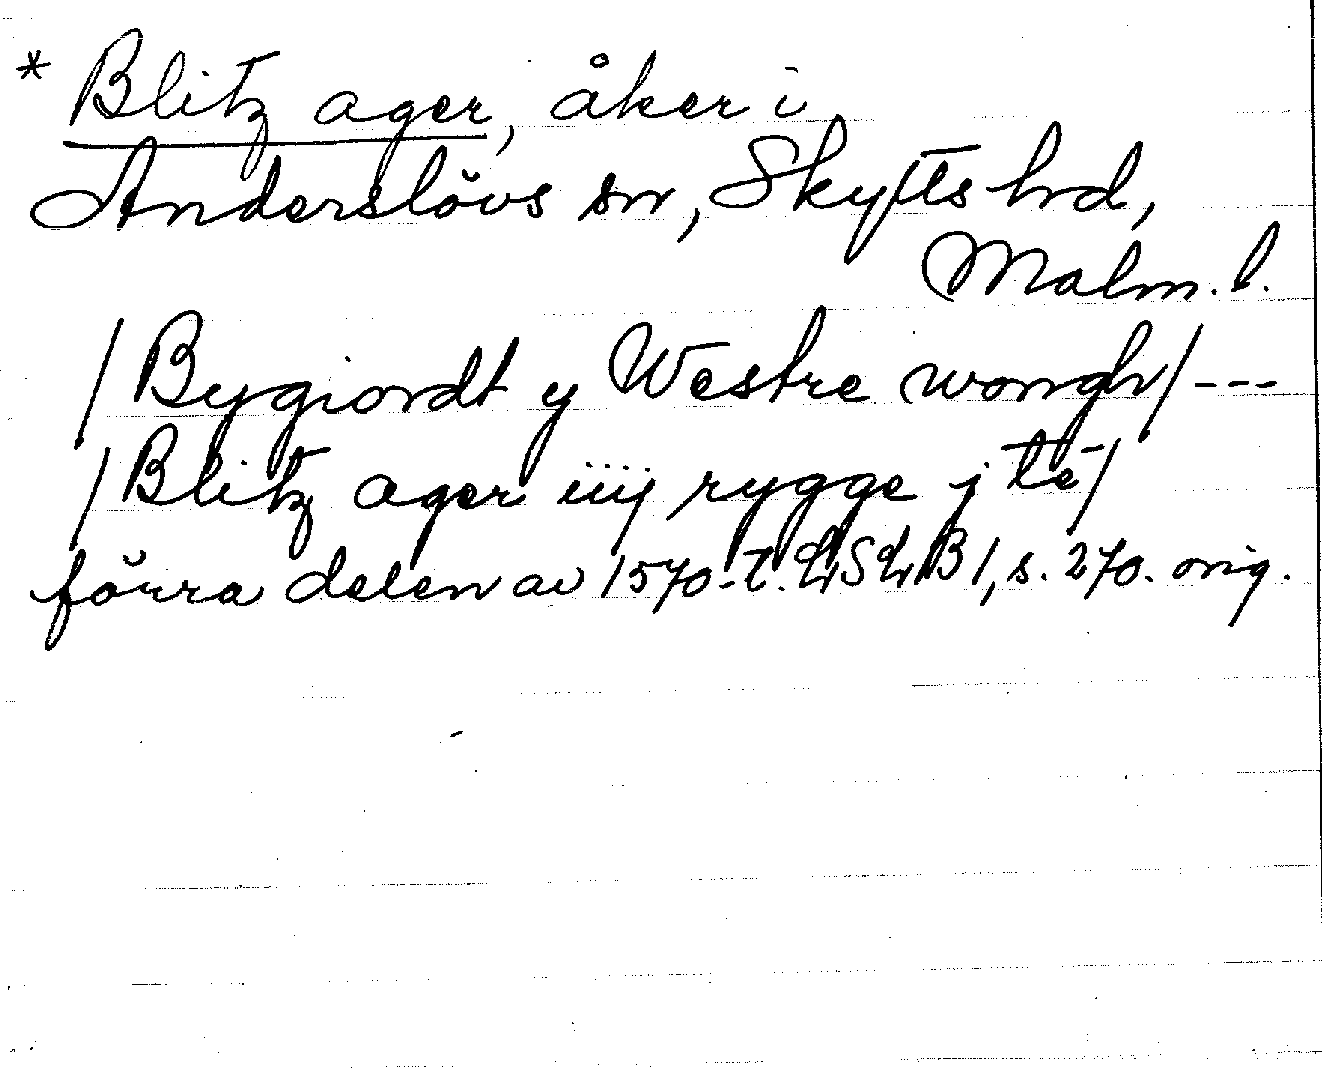 * Blitz ager, åker i
Anderslövs sn, Skytts hd,
Malm. l.
/Bygiordt y Westre wongh/---
/Blitz ager iiij rygge j te/
förra delen av 1570-t. LSLB 1, s. 270. orig.